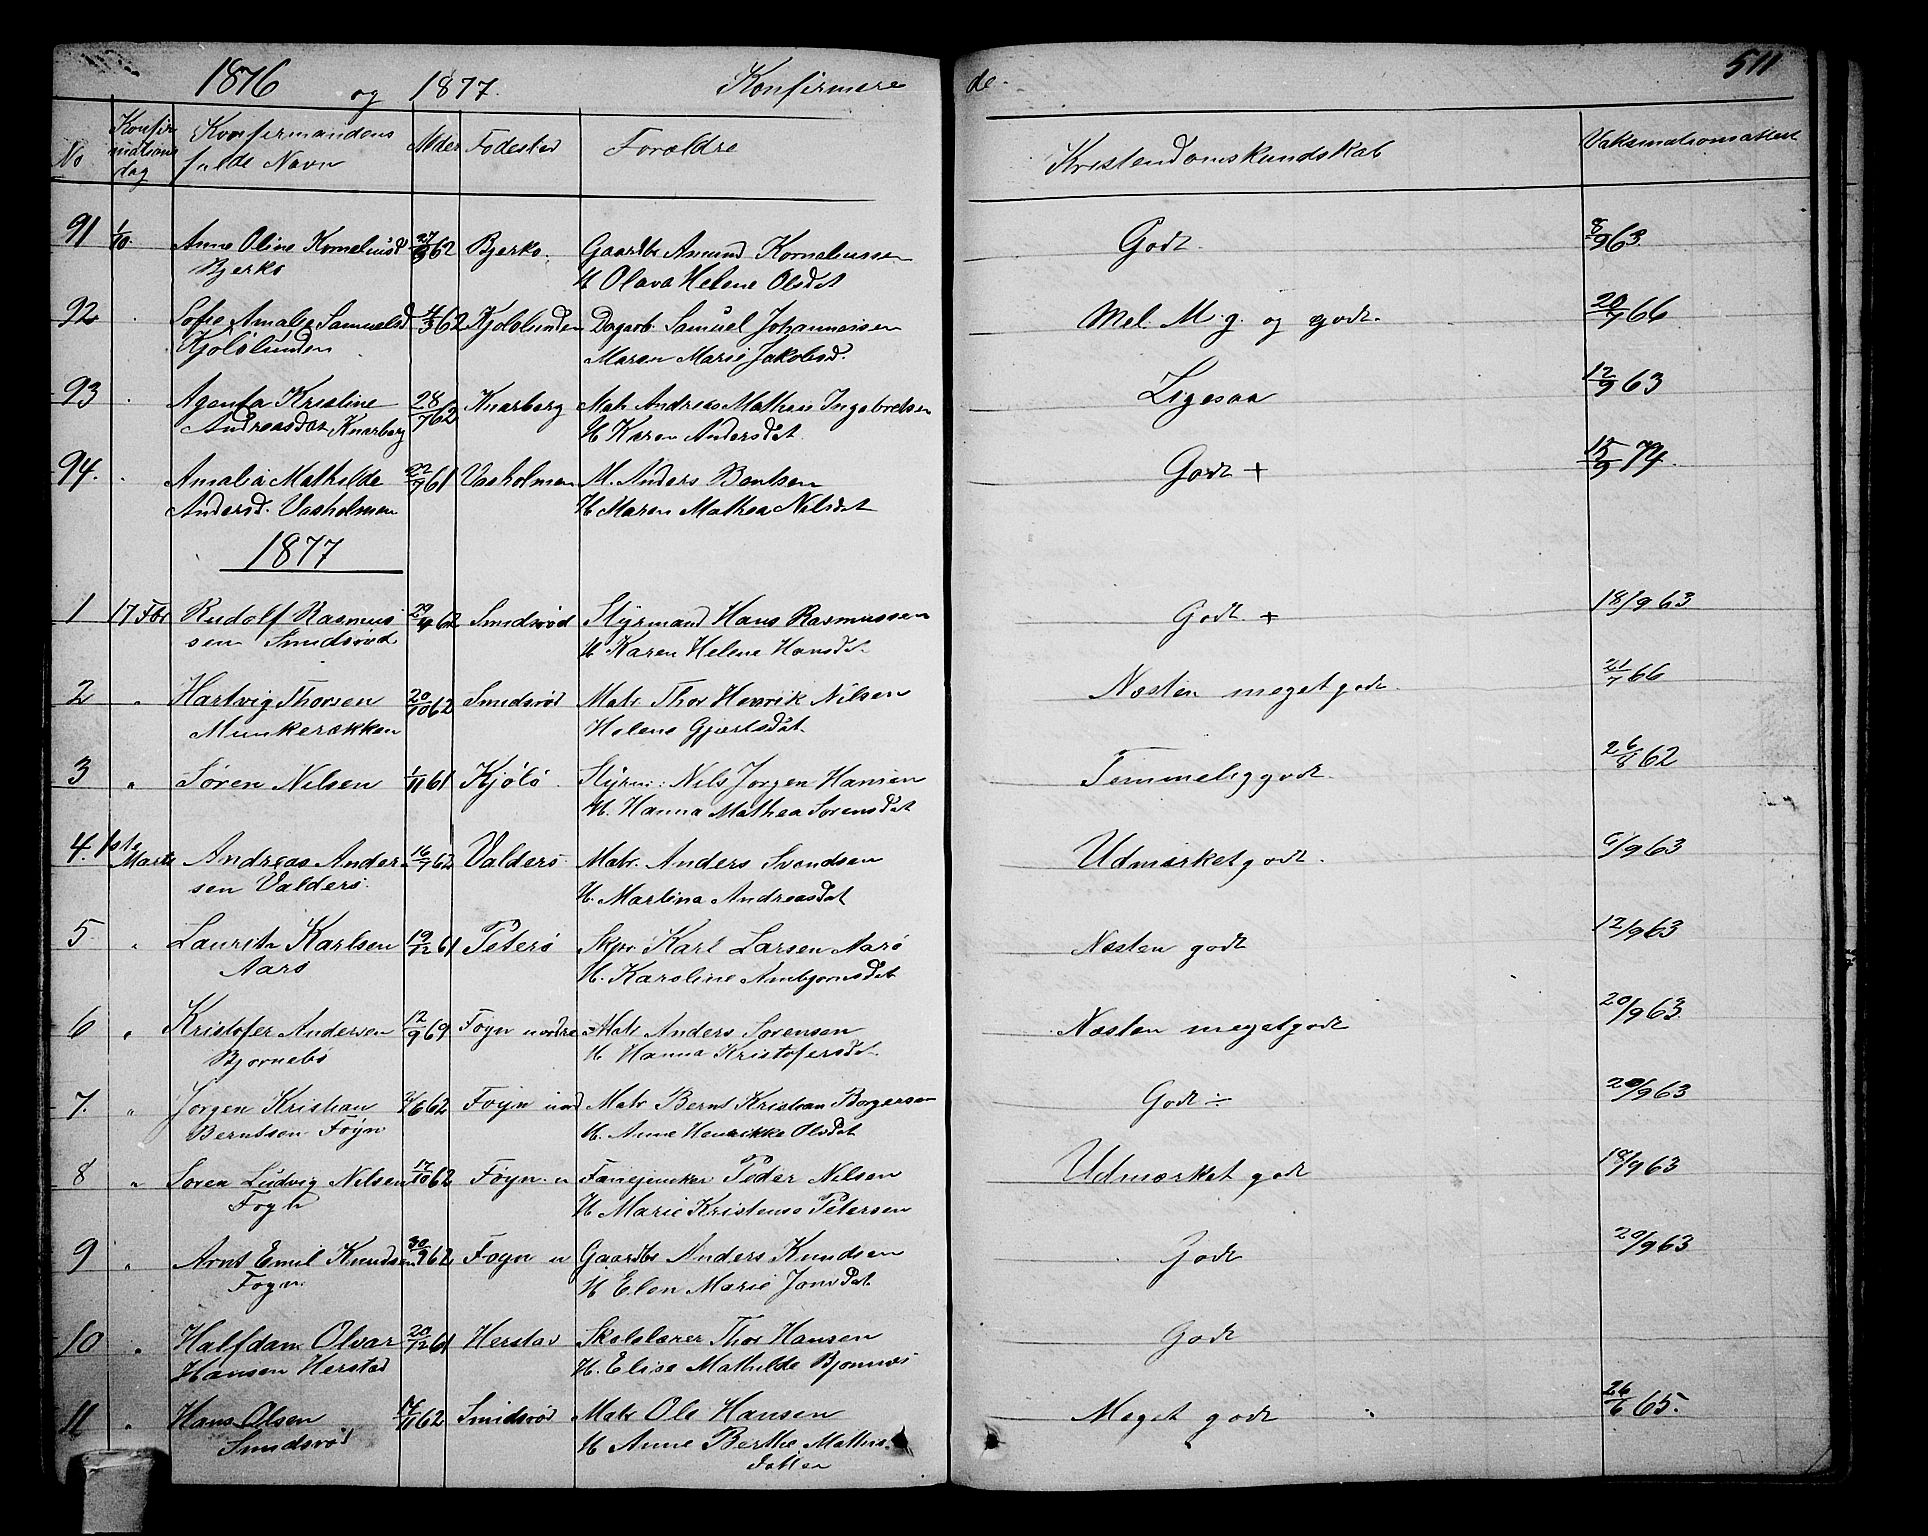 1876 og 1877. Konfirmere de. 511
No Konfirmations dag Konfirmandens fulde Navn Alder Fødested Forældre Kristendomskundskab Vaksinationsattest
91 1/10. Anne Oline Korneliusd 62 Bjerkø. Gaardbr Amund Korneliussen Godt. 8/9 63
Bjerkø H Olava Helene Olsdat
92 . Sofie Amalie Samuelsd 4/3 62 Kjølslunden Dagarb. Samuel Johannessen Mel. M.g. og godt. 20/7 66
Kjolslunden Maren Marie Jakobsd.
93 . Agenta Kristine 28/7 62 Knarberg Matr Andreas Mathias Ingebretsen Ligesaa 12/9 63
Andreasdat Knarberg H Karen Andersdat.
94. . Amalia Mathilde 22/9 61 Vasholmen M. Anders Bentsen Godt + 15/9 74.
Andersd. Vasholmen H Maren Mathea Nilsdat
1877
1 17 Fbr Rudolf Rasmus 29/4 62 Smidsrød Styrmand Hans Rasmussen Godt + 18/9 63
sen Smidsrød H Karen Helene Hansdat.
2 " Hartvig Thorsen 20/10 62 Smidsrød Matr Thor Henrik Nilsen Næsten meget godt. 21/7 66
Munkerækken Helene Gjertsdat.
3 " Søren Nilsen 1/11 61 Kjölö Styrm: Nils Jørgen Hansen Temmelig godt. 26/8 62
H. Hanna Mathea Sørensdat
4. 1ste Marts Andreas Ander 16/7 62 Valderö Matr. Anders Svendsen Udmærket godt. 6/9 63
sen Valderö. H. Martina Andreasdat
5 " Lauritz Karlsen 19/12 61 Peterö Skpr Karl Larsen Aarö Næsten godt 12/9 63
Aarö H. Karoline Arnbjørnsdat
6 " Kristofer Andersen 12/9 61 Føyn nordre Matr Anders Sørensen Næsten meget godt 20/9 63
Bjørnebö H Hanna Kristofersdat.
7. " Jørgen Kristian /6 62 Føyn nord Matr Bernt Kristian Borgersen Godt ÷ 20/9 63
Berntsen Føyn H. Anne Henrikke Olsdat
8 " Søren Ludvig Nilsen 17/10 62 Føyn n Fanejunker Peder Nilsen Udmærket godt 18/9 63
Føyn H Marie Kristense Petersen
9 " Arnt Emil Knudsen 30/9 62 Føyn n Gaardbr Anders Knudsen Godt 20/9 63
Føyn. H Elen Marie Jansdat
10 " Halfdan Olvar 20/12 61 Herstad Skolelærer Thor Hansen Godt
Hansen Herstad H. Elise Mathilde
11 " Hans Olsen /11 62 Smidsrød Matr Ole Hansen Meget godt 26/6 65.
Smidsrød H Anne Berthe Mathis
datter